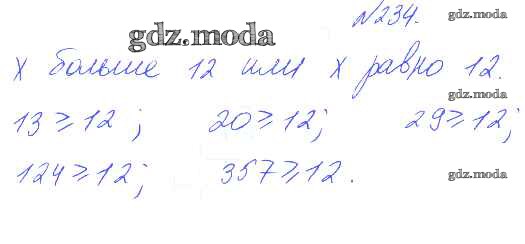 №234. gdz.moda
gdz.moda
x больше 12 или x равно 12.
gdz.moda
13 ≥ 12 ; 20 ≥ 12; 29 ≥ 12;
124 ≥ 12; 357 ≥ 12.
gdz.moda